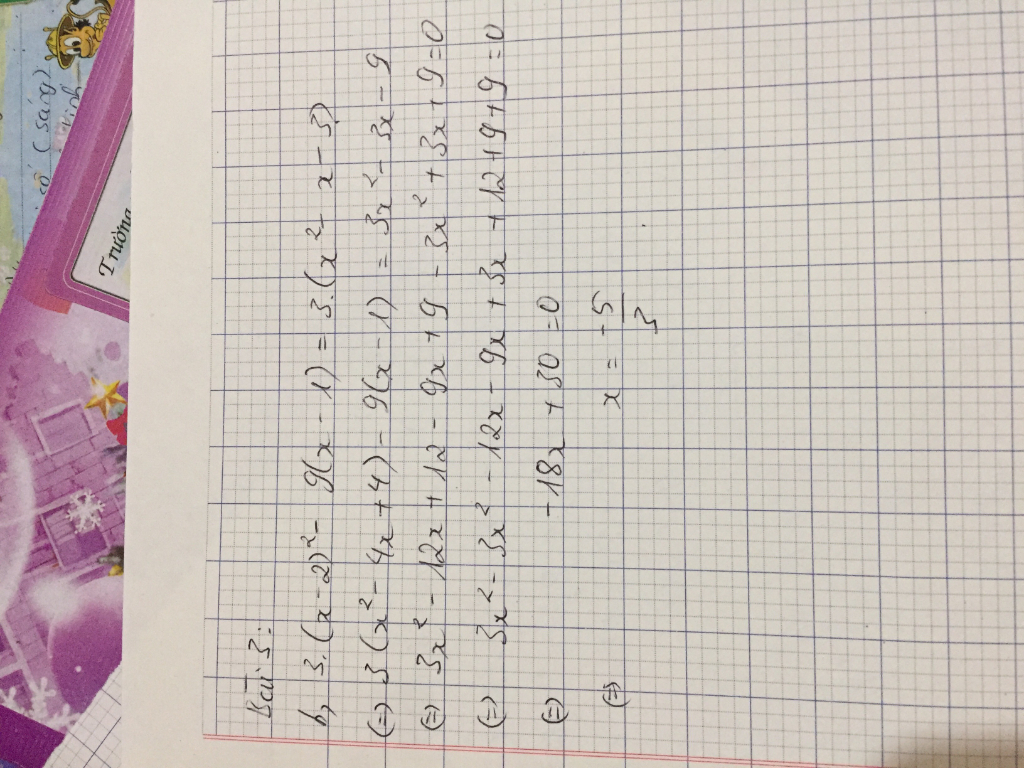 Bài 3:
b, 3.(x-2)² - 9(x-1) = 3.(x² - x - 3)
(=) 3(x² - 4x + 4) - 9(x-1) = 3x² - 3x - 9
(=) 3x² - 12x + 12 - 9x + 9 - 3x² + 3x + 9 = 0
(=) 3x² - 3x² - 12x - 9x + 3x + 12 + 9 + 9 = 0
(=) -18x + 30 = 0
(=) x = -5/3
(sáng)
Trường